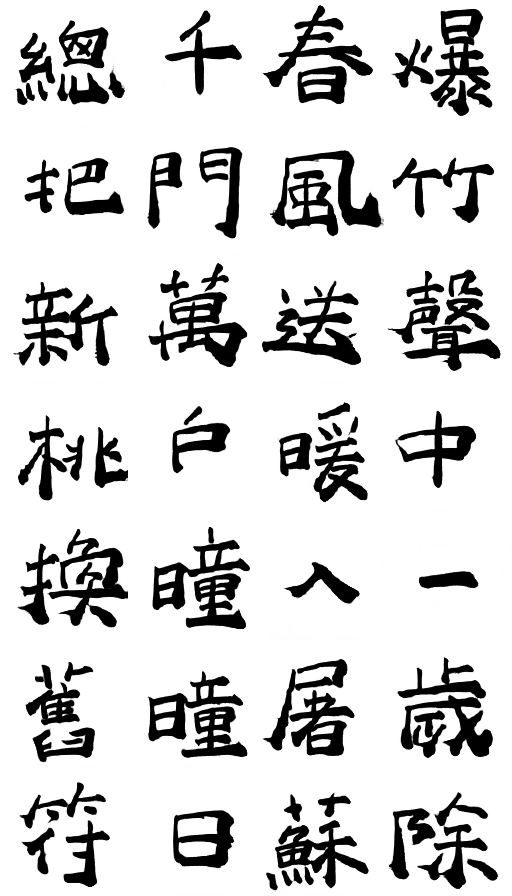 爆竹聲中一歲除
春風送暖入屠蘇
千門萬戶曈曈日
總把新桃換舊符